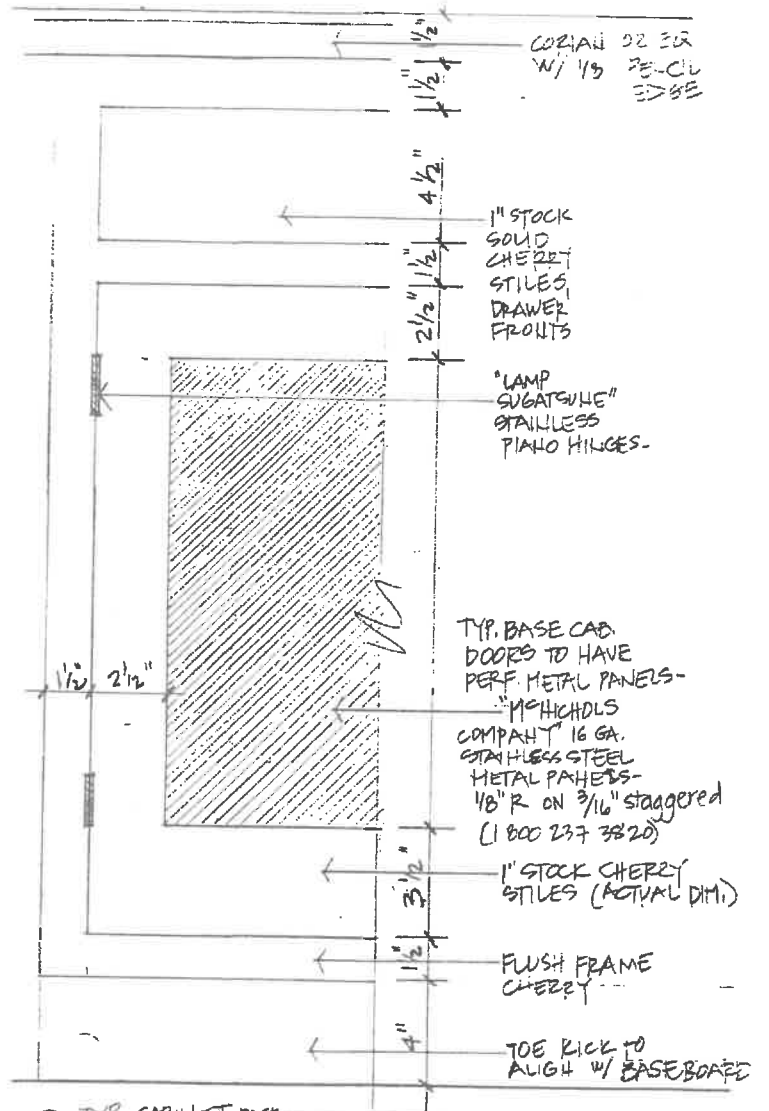 1/2"
CORIAN OR EQ
W/ 1/8 PENCIL
EDGE
1 1/2"
4 1/2"
1" STOCK
SOLID
CHERRY
STILES,
DRAWER
FRONTS
1 1/2"
2 1/2"
"LAMP
SUGATSUNE"
STAINLESS
PIANO HINGES-
TYP. BASE CAB.
DOORS TO HAVE
PERF. METAL PANELS-
"McNICHOLS
COMPANY" 16 GA.
STAINLESS STEEL
METAL PANELS-
1/8" R ON 3/16" staggered
(1 800 237 3820)
1 1/2" 2 1/2"
3 1/2"
1" STOCK CHERRY
STILES (ACTUAL DIM.)
1 1/2"
FLUSH FRAME
CHERRY
4"
TOE KICK TO
ALIGN W/ BASEBOARD